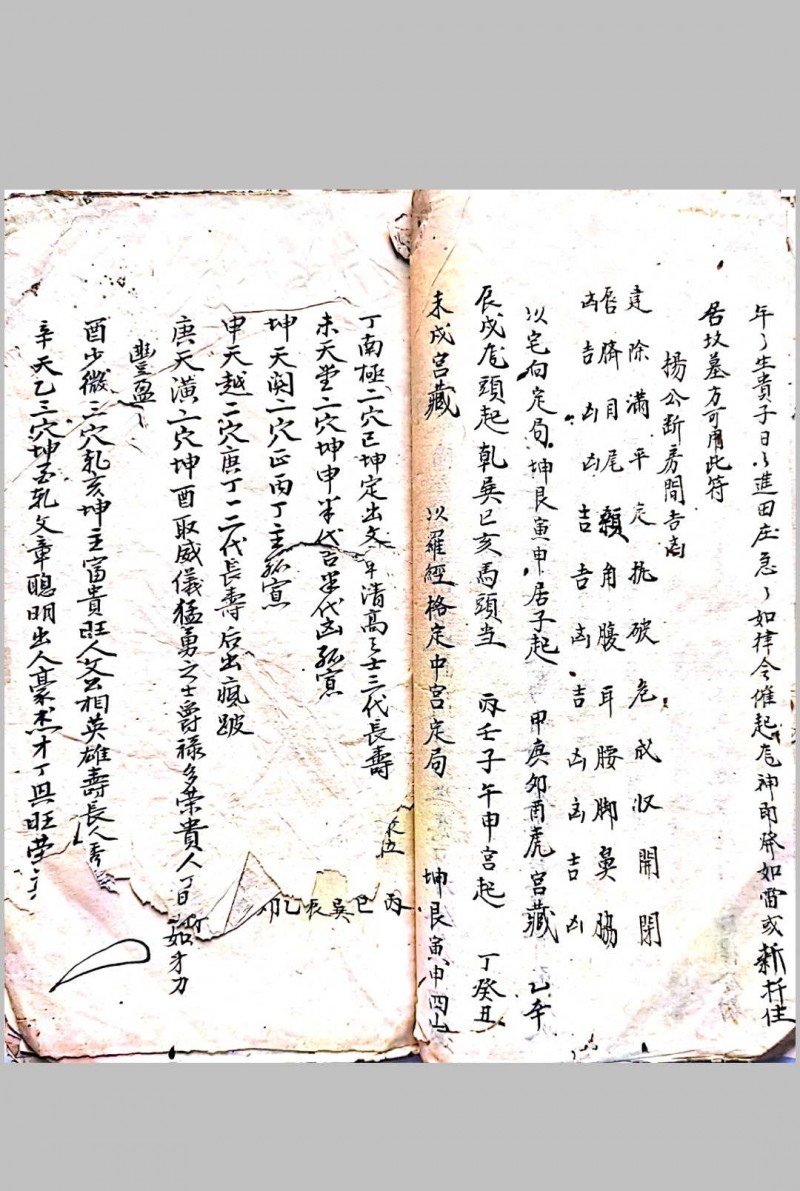 年々生貴子日々進田庄急々如律令催起龙神即降如雷或新扦住
居坟墓方可用此符
楊公断房間吉凶
建除滿平定执破危成収開閉
唇臍目尾額角腹耳腰脚鼻脇
凶吉凶凶吉吉凶吉凶凶吉凶
以宅向定局坤艮寅申居子起 甲庚卯酉虎宮藏 乙辛
辰戍龙頭起乾巽巳亥馬頭当 丙壬子午申宮起 丁癸丑
未戍宮藏 以羅經格定中宮定局 坤艮寅申四山
丁南極二穴巳坤定出文 清高之士三代長壽
未天堂二穴坤申半代吉半代凶孤寡
坤天関一穴正丙丁主孤寡
申天越二穴庚丁一二代長壽后出瘋跛
庚天潢二穴坤酉取威儀猛勇之士爵禄多荣貴人丁
豐盈
酉少微二穴乾亥坤主富貴旺人 相英雄壽長人
辛天乙三穴坤 乾文章聰明出人豪杰才丁興旺荣
丙巳巽辰乙卯